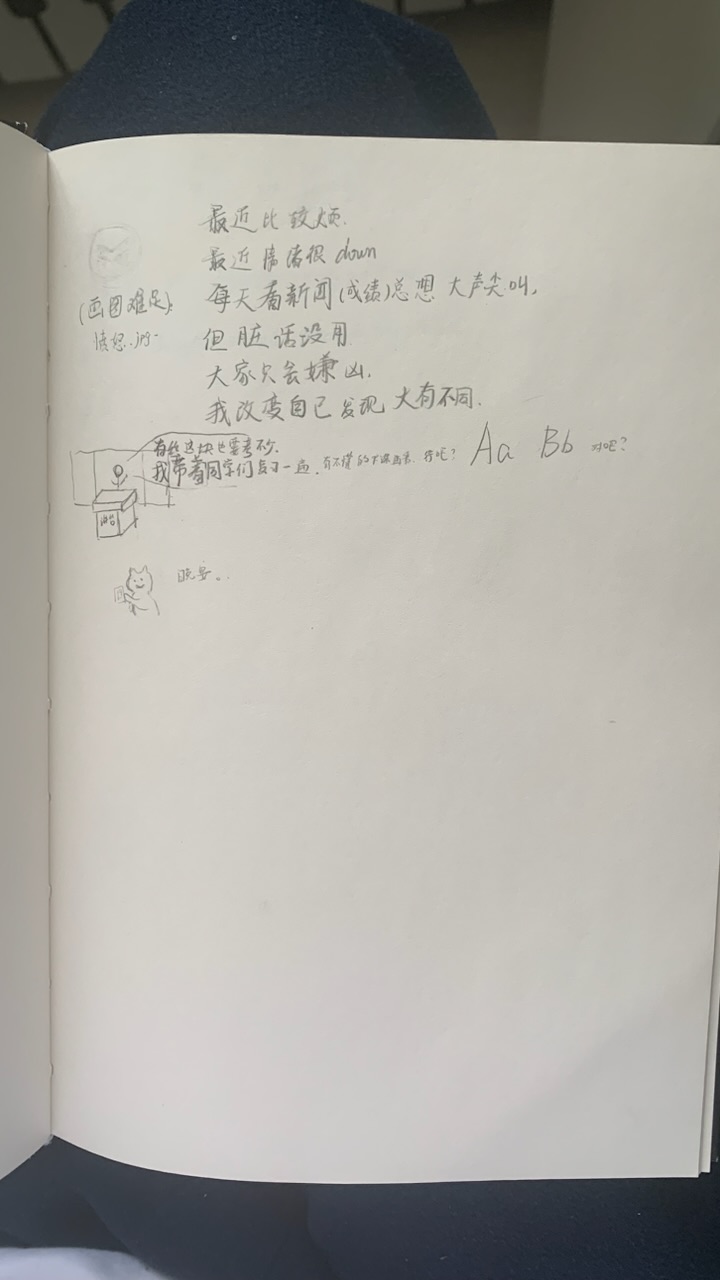 最近比较烦.
最近情绪很 down
每天看新闻(成绩)总想大声尖叫,
(画图难足).
愤怒.jpg
但脏话没用
大家只会嫌凶.
我改变自己发现大有不同.
有些这块也要考不少.
我带着同学们复习一遍. 有不懂的下课再来. 好吧? Aa Bb 对吧?
讲台
晚安..